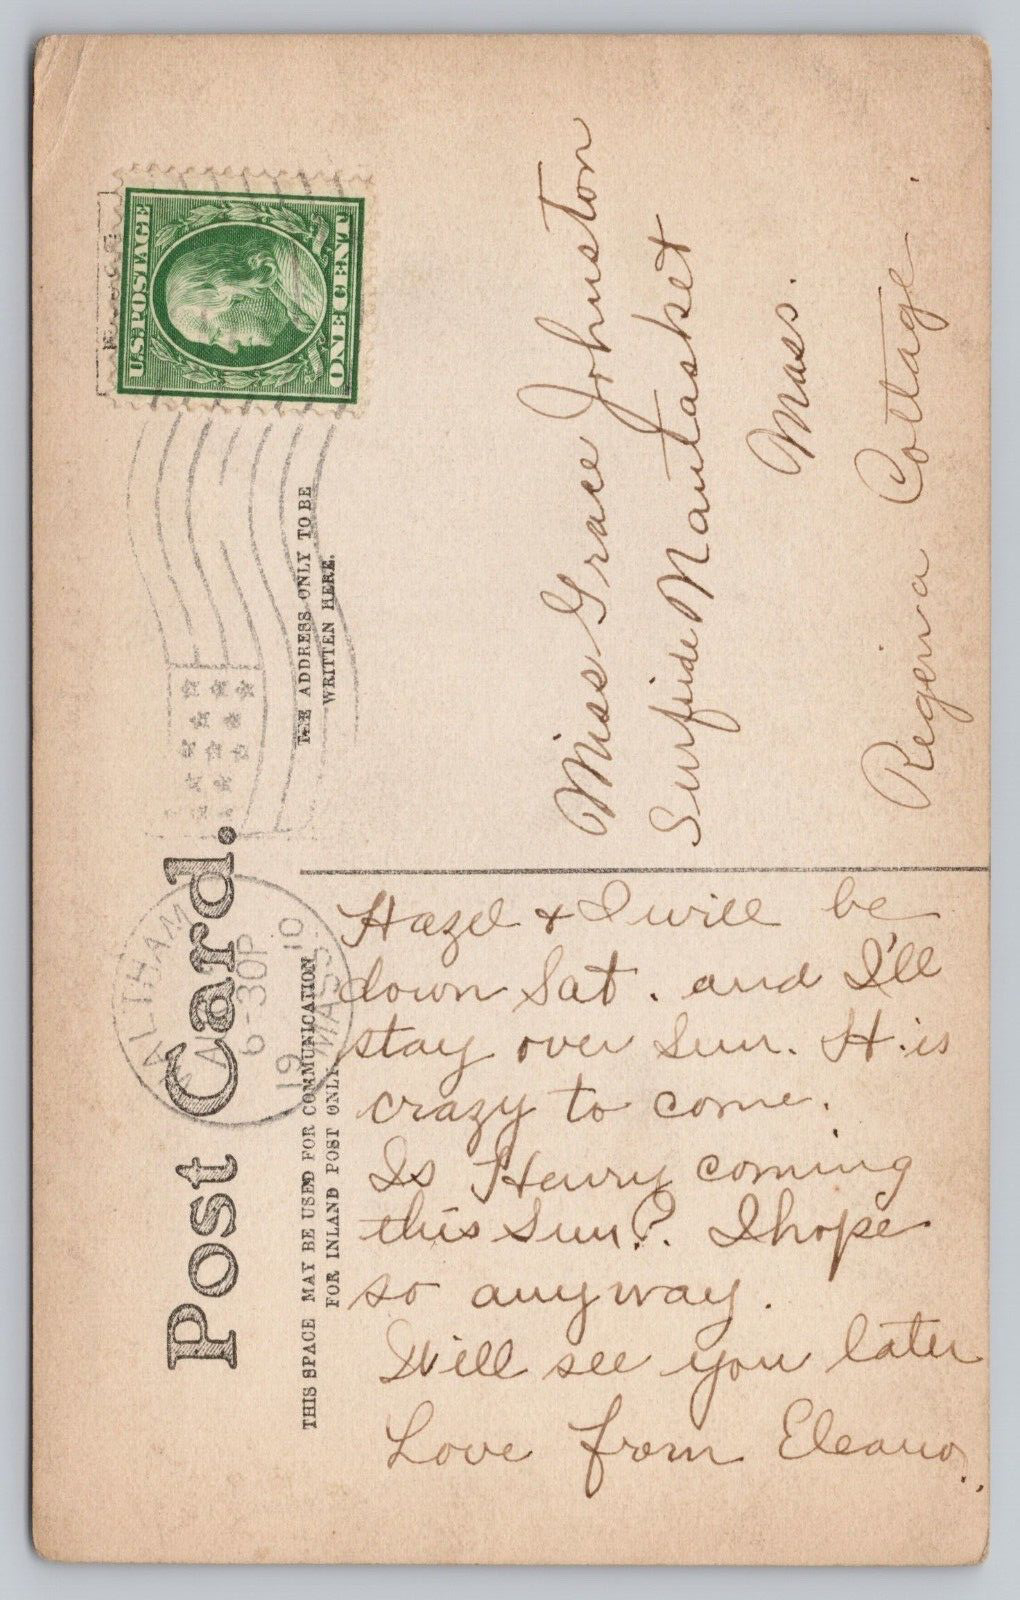 Post Card.
THIS SPACE MAY BE USED FOR COMMUNICATION
FOR INLAND POST ONLY
THE ADDRESS ONLY TO BE
WRITTEN HERE.
U.S. POSTAGE
ONE CENT
WALTHAM
6-30P
19 10
MASS.
Miss Grace Johnston
Surfside Nantasket
Mass.
Regina Cottage.
Hazel & I will be
down Sat. and I'll
stay over Sun. H. is
crazy to come.
Is Henry coming
this Sun.? I hope
so anyway.
Will see you later
Love from Eleanor.